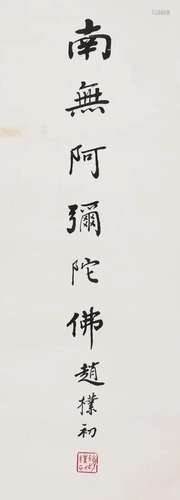 南無阿彌陀佛
趙樸初